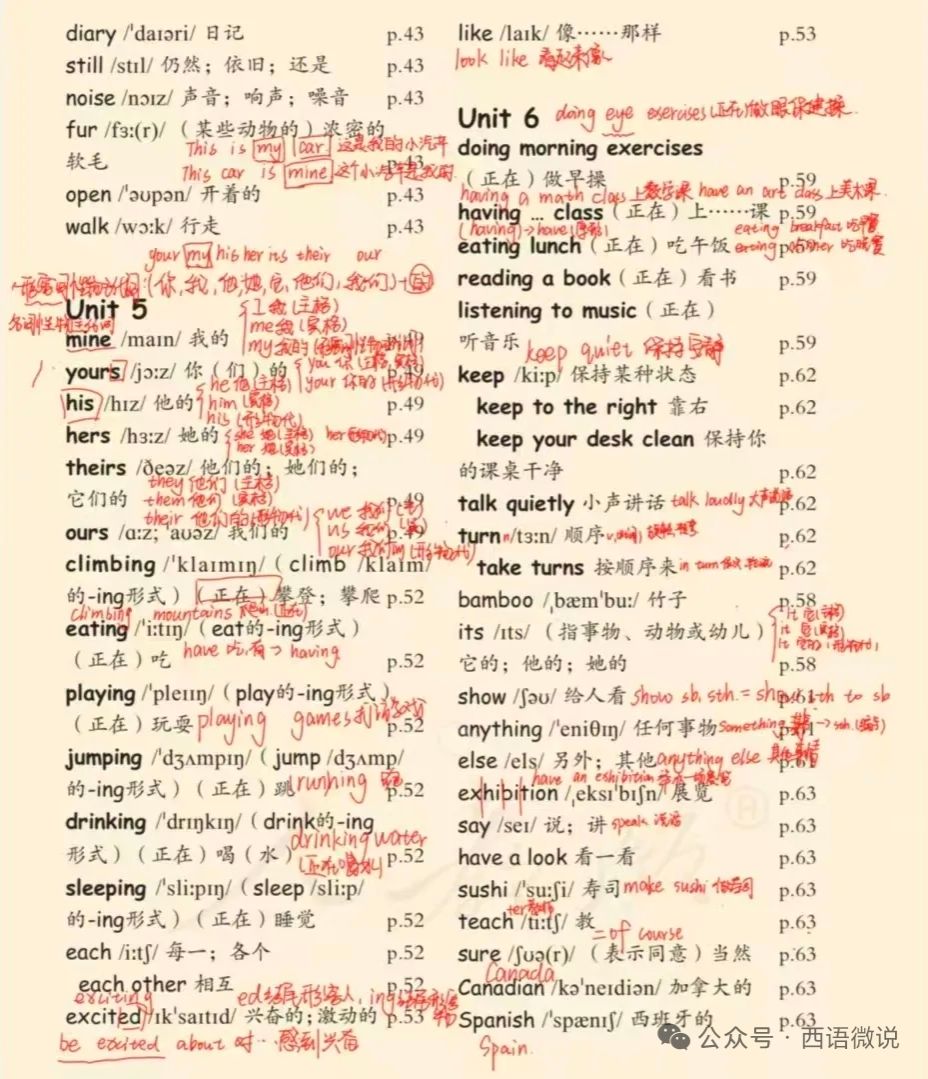 diary /ˈdaɪəri/ 日记 p.43
still /stɪl/ 仍然；依旧；还是 p.43
noise /nɔɪz/ 声音；响声；噪音 p.43
fur /fɜː(r)/ （某些动物的）浓密的
软毛 p.43
This is my car. 这是我的小汽车
This car is mine 这个小汽车是我的.
open /ˈəʊpən/ 开着的 p.43
walk /wɔːk/ 行走 p.43
your my his her its their our
(你,我,他,她,它,他们,我们)+的
Unit 5
mine /maɪn/ 我的 p.49
I 我(主格)
me 我(宾格)
my 我的
yours /jɔːz/ 你（们）的 p.49
you 你(主格,宾格)
your 你的
his /hɪz/ 他的 p.49
he 他(主格)
him (宾格)
his
hers /hɜːz/ 她的 p.49
she 她(主格) her
her 她(宾格)
theirs /ðeəz/ 他们的；她们的；
它们的 p.49
they 他们(主格)
them 他们(宾格)
their 他们的
ours /ɑːz; ˈaʊəz/ 我们的 p.49
we 我们
us 我们
our 我们的
climbing /ˈklaɪmɪŋ/（climb /klaɪm/
的-ing形式）（正在）攀登；攀爬 p.52
climbing mountains 爬山(正在)
eating /ˈiːtɪŋ/（eat的-ing形式）
（正在）吃 p.52
have 吃,有→having
playing /ˈpleɪɪŋ/（play的-ing形式）
（正在）玩耍 p.52
playing games
jumping /ˈdʒʌmpɪŋ/（jump /dʒʌmp/
的-ing形式）（正在）跳 p.52
running 跑
drinking /ˈdrɪŋkɪŋ/（drink的-ing
形式）（正在）喝（水） p.52
drinking water
(正在喝水)
sleeping /ˈsliːpɪŋ/（sleep /sliːp/
的-ing形式）（正在）睡觉 p.52
each /iːtʃ/ 每一；各个 p.52
each other 相互 p.52
exciting
excited /ɪkˈsaɪtɪd/ 兴奋的；激动的 p.53
be excited about 对…感到兴奋
like /laɪk/ 像……那样 p.53
look like 看起来像
Unit 6
doing eye exercises (正在)做眼保健操.
doing morning exercises
（正在）做早操 p.59
having a math class 上数学课 have an art class 上美术课.
having … class（正在）上……课 p.59
(having)→have(原形) eating breakfast 吃早餐
eating lunch（正在）吃午饭 p.59
eating dinner 吃晚餐
reading a book（正在）看书 p.59
listening to music（正在）
听音乐 p.59
keep quiet 保持安静
keep /kiːp/ 保持某种状态 p.62
keep to the right 靠右 p.62
keep your desk clean 保持你
的课桌干净 p.62
talk quietly 小声讲话 p.62
talk loudly
turn /tɜːn/ 顺序 p.62
take turns 按顺序来 p.62
in turn
bamboo /ˌbæmˈbuː/ 竹子 p.58
its /ɪts/ （指事物、动物或幼儿）
它的；他的；她的 p.58
it 它(主格)
it 它(宾格)
show /ʃəʊ/ 给人看 p.61
show sb. sth. = show sth to sb
anything /ˈeniθɪŋ/ 任何事物 p.61
something
else /els/ 另外；其他 p.61
anything else
have an exhibition
exhibition /ˌeksɪˈbɪʃn/ 展览 p.63
say /seɪ/ 说；讲 p.63
speak 说话
have a look 看一看 p.63
sushi /ˈsuːʃi/ 寿司 p.63
make sushi 做寿司
ter 教师
teach /tiːtʃ/ 教 p.63
=of course
sure /ʃʊə(r)/ （表示同意）当然 p.63
Canada
Canadian /kəˈneɪdiən/ 加拿大的 p.63
Spanish /ˈspænɪʃ/ 西班牙的
Spain.
公众号·西语微说